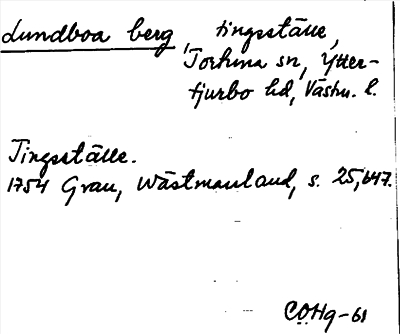 Lundboa berg, tingsställe,
Tortuna sn, Ytter-
tjurbo hd, Västm. l.
Tingsställe.
1754 Grau, Wästmanland, s. 25, 647.
C.O.Hg-61